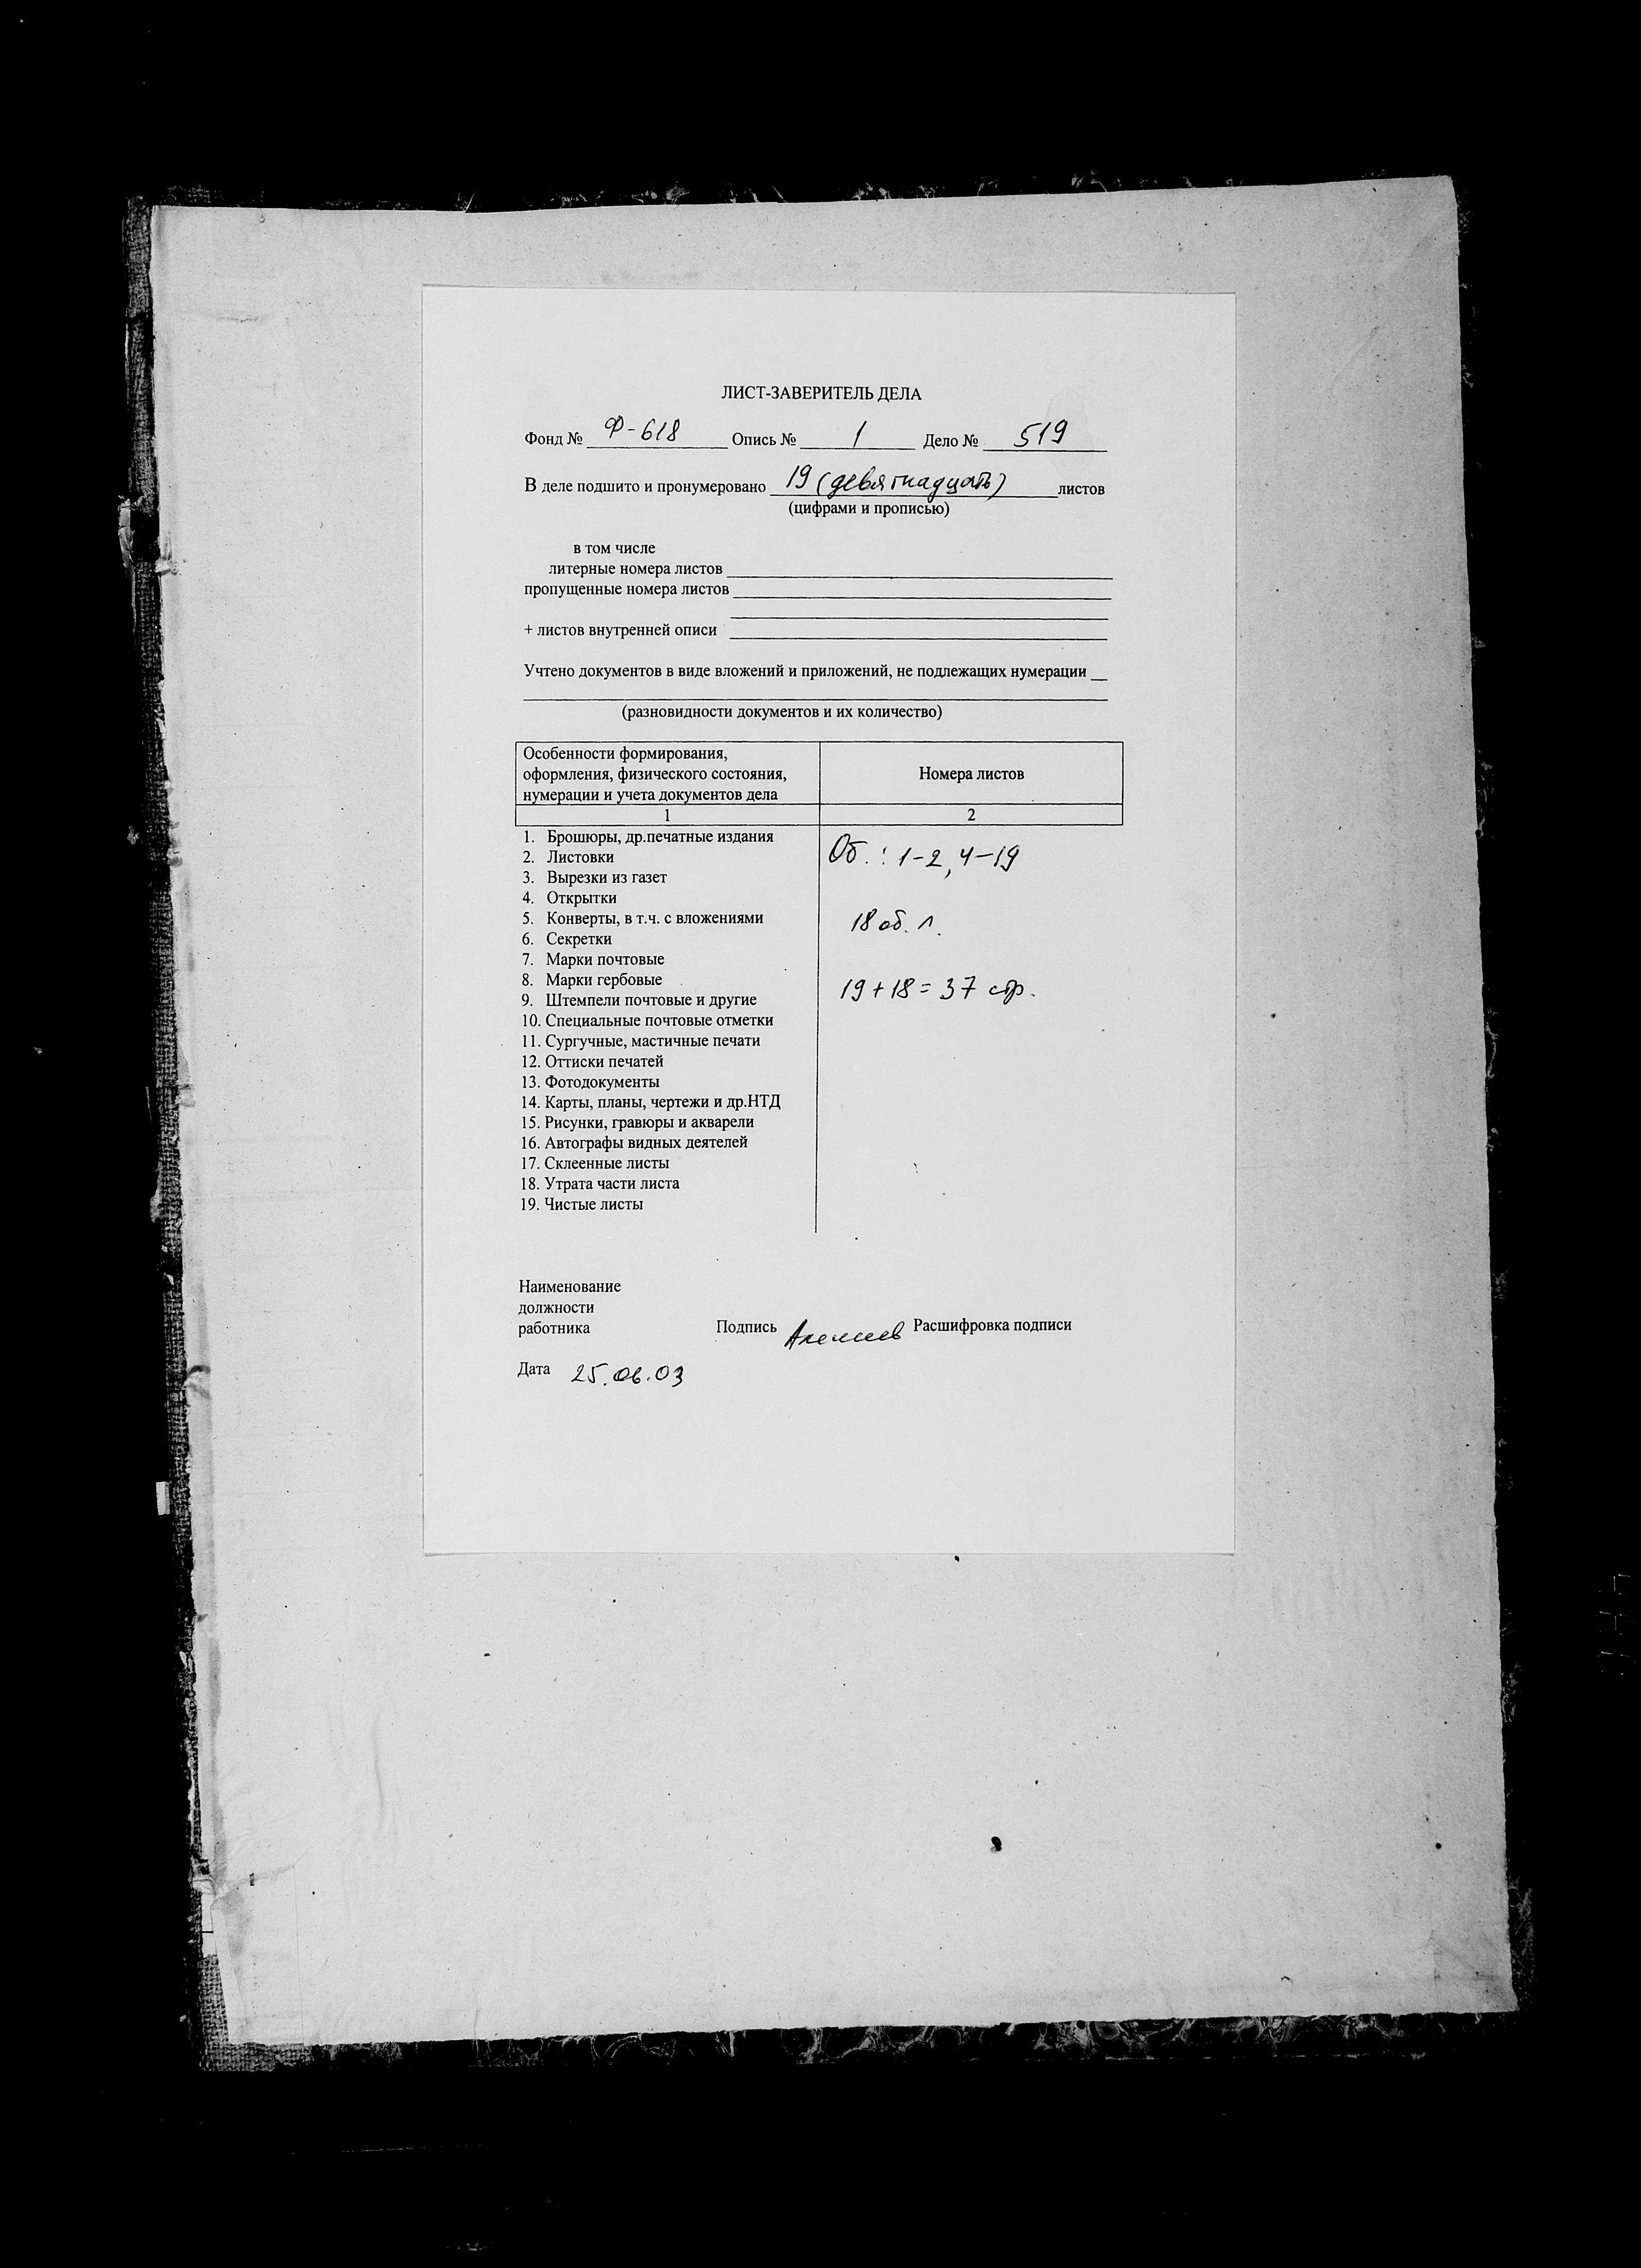 ЛИСТ-ЗАВЕРИТЕЛЬ ДЕЛА
Фонд № Ф-618 Опись № 1 Дело № 519
В деле подшито и пронумеровано 19 (девятнадцать) листов
(цифрами и прописью)
в том числе
литерные номера листов
пропущенные номера листов
+ листов внутренней описи
Учтено документов в виде вложений и приложений, не подлежащих нумерации
(разновидности документов и их количество)
Особенности формирования,
оформления, физического состояния,
нумерации и учета документов дела
Номера листов
1 2
1. Брошюры, др.печатные издания
2. Листовки Об.: 1-2, 4-19
3. Вырезки из газет
4. Открытки
5. Конверты, в т.ч. с вложениями 18 об. л.
6. Секретки
7. Марки почтовые
8. Марки гербовые
9. Штемпели почтовые и другие 19+18=37 стр.
10. Специальные почтовые отметки
11. Сургучные, мастичные печати
12. Оттиски печатей
13. Фотодокументы
14. Карты, планы, чертежи и др.НТД
15. Рисунки, гравюры и акварели
16. Автографы видных деятелей
17. Склеенные листы
18. Утрата части листа
19. Чистые листы
Наименование
должности
работника Подпись Расшифровка подписи
Дата 25.06.03